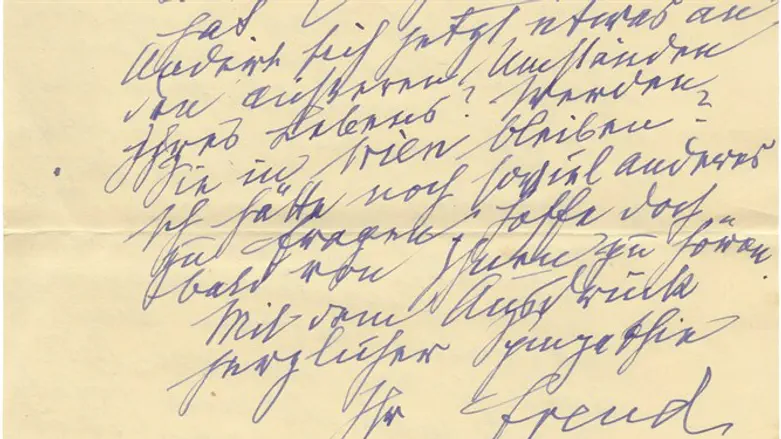 hat
Ändert sich jetzt etwas an
den äußeren Umständen
Ihres Lebens? Werden
Sie in Wien bleiben?
Ich hätte noch soviel anderes
zu fragen, hoffe doch
bald von Ihnen zu hören.
Mit dem Ausdruck
herzlicher Sympathie
Ihr Freud